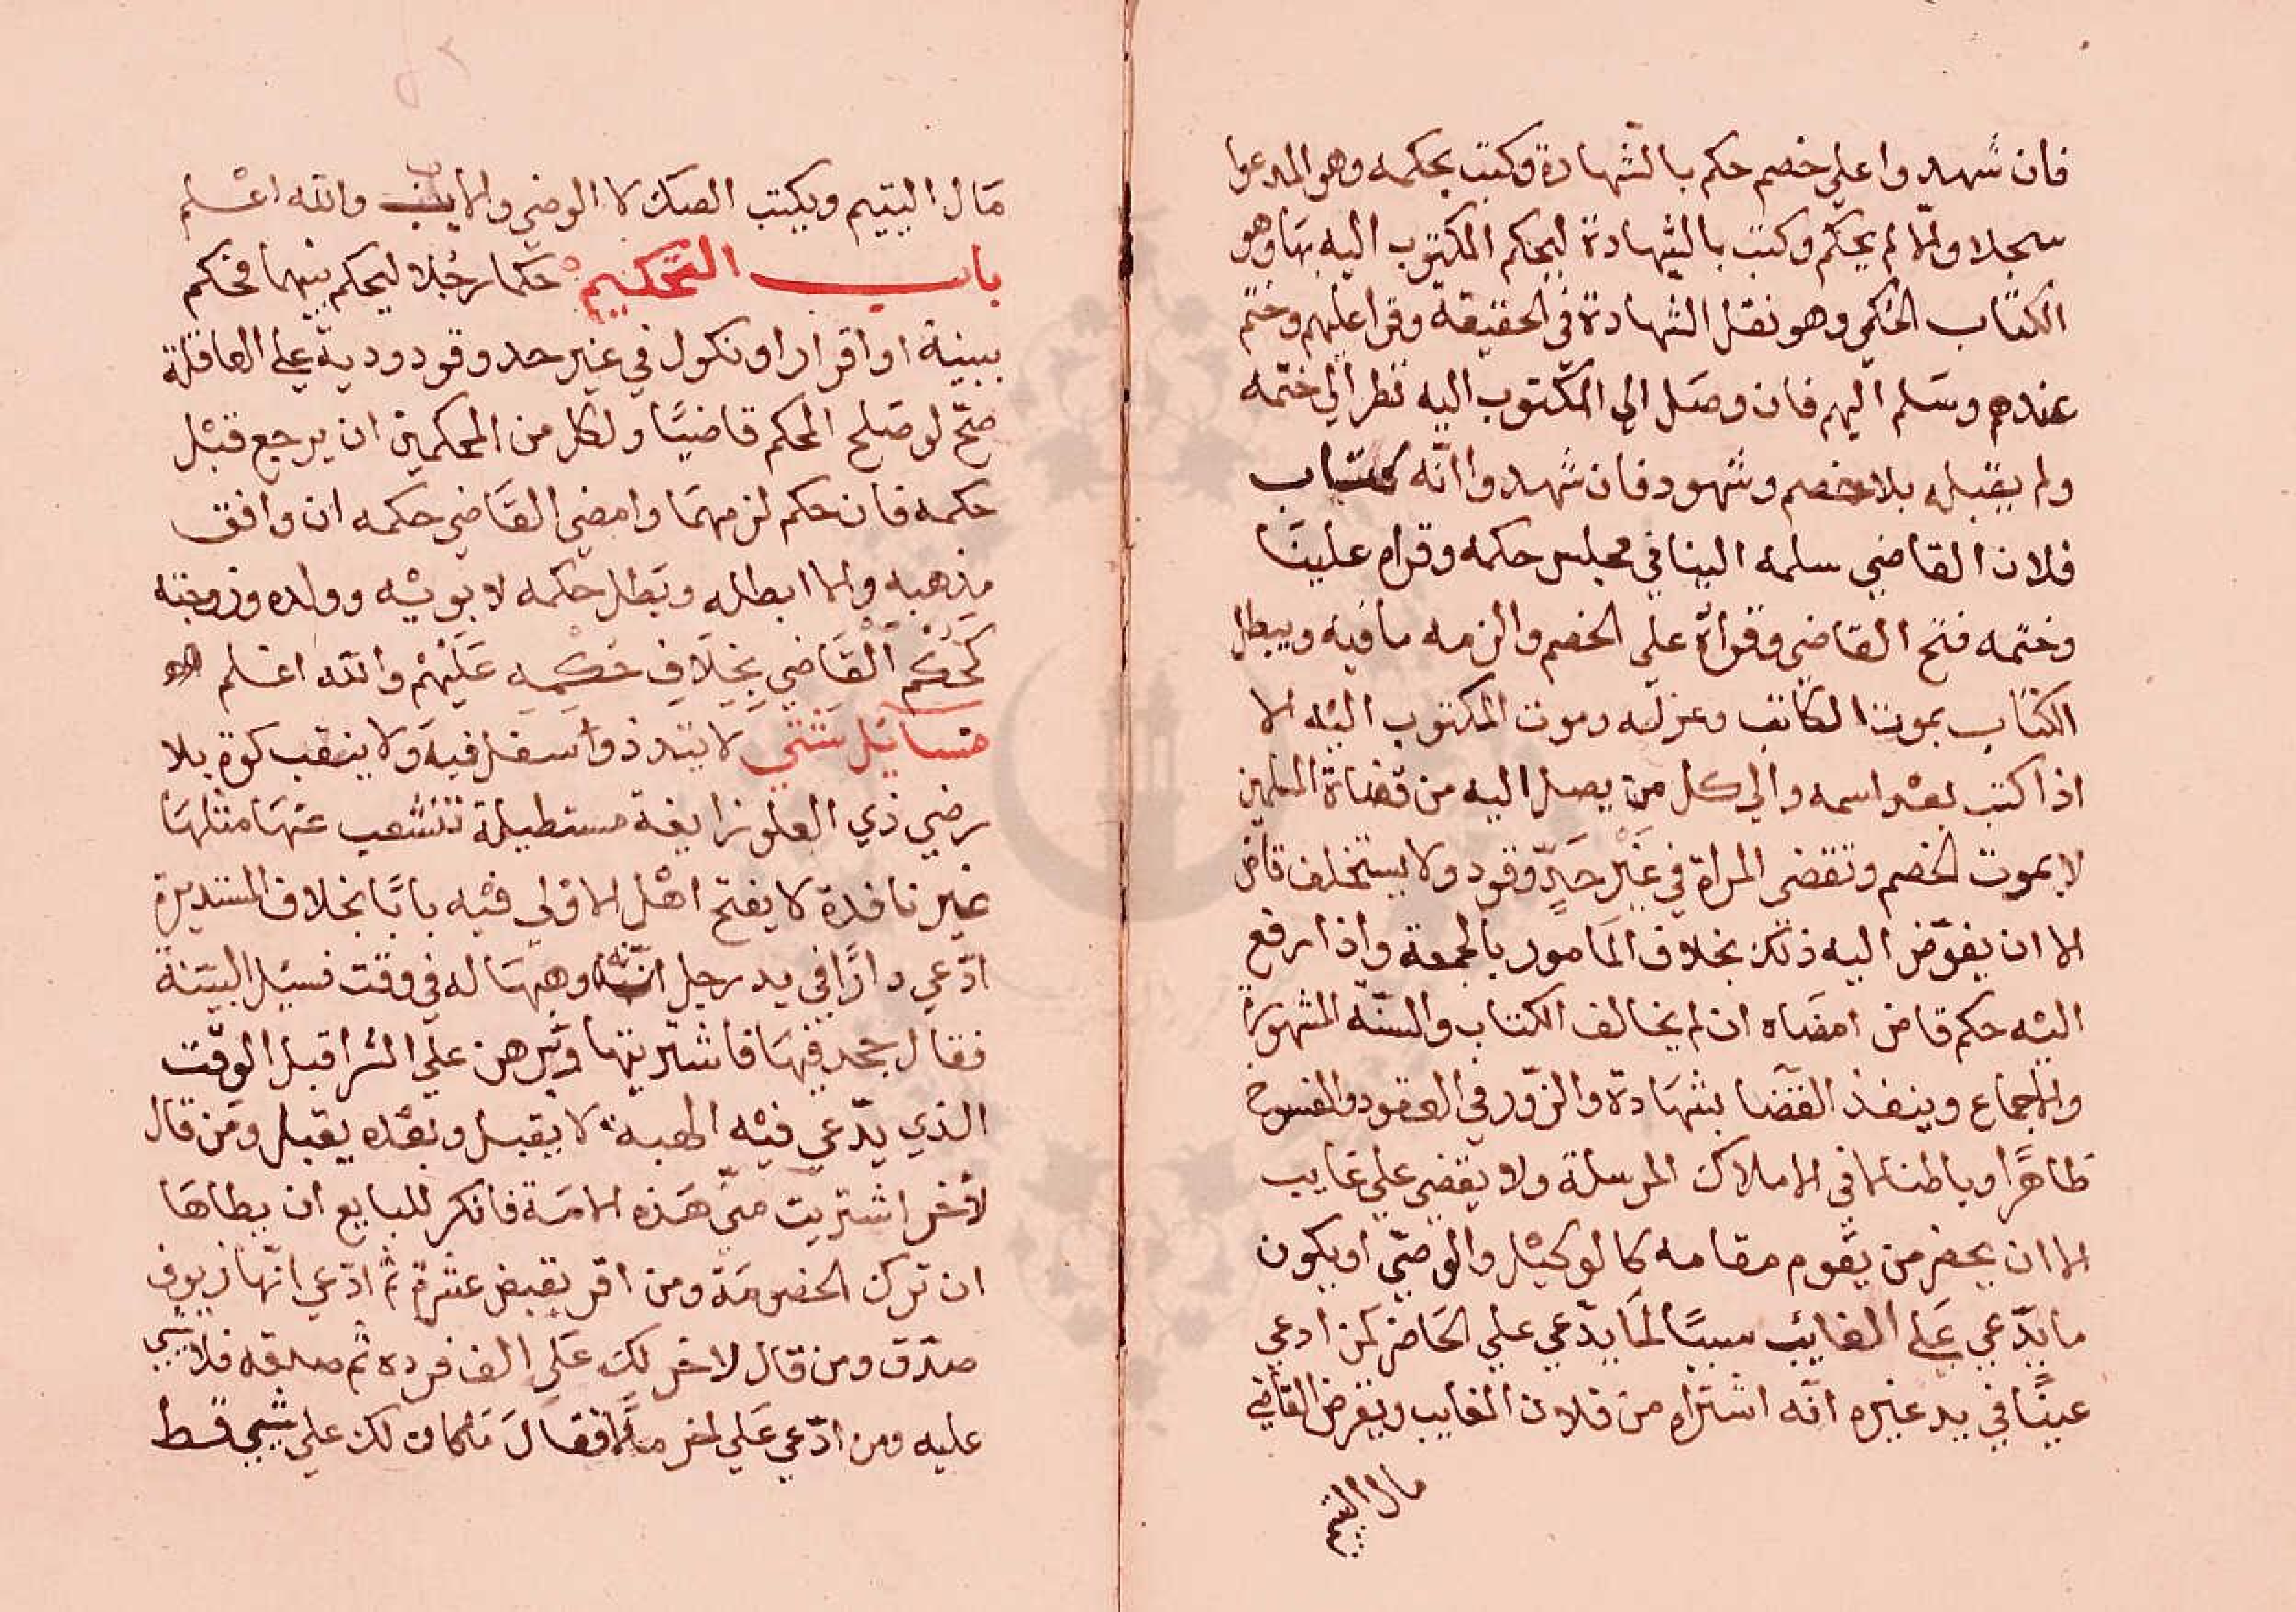 فان شهدوا علي خصم حكم بالشهادة وكتب بحكمه وهو المدعوا
سجلا والا لم يحكم وكتب بالشهادة ليحكم المكتوب اليه بها وهو
الكتاب الحكمي وهو نقل الشهادة في الحقيقة وقرا عليهم وختم
عندهم وسلم اليهم فان وصل الي المكتوب اليه نظر الي ختمه
ولم يقبله بلا خصم وشهود فان شهدوا انه كتاب
فلان القاضي سلمه الينا في مجلس حكمه وقراه علينا
وختمه فتح القاضي وقراه علي الخصم والزمه ما فيه ويبطل
الكتاب بموت الكاتب وعزله وموت المكتوب اليه الا
اذا كتب بعد اسمه والي كل من يصل اليه من قضاة المسلمين
لا بموت الخصم وتقضى المراة في غير حد وقود ولا يستخلف قاض
الا ان يفوض اليه ذلك بخلاف المامور بالجمعة واذا رفع
اليه حكم قاض امضاه ان لم يخالف الكتاب والسنة المشهورة
والاجماع وينفذ القضا بشهادة والزور في العقود والفسوخ
ظاهرا وباطنا لا في الاملاك المرسلة ولا يقضي علي غايب
الا ان يحضر من يقوم مقامه كالوكيل والوصي او يكون
ما يدعي علي الغائب سببا لما يدعي علي الحاضر كمن ادعي
عينا في يد غيره انه اشتراه من فلان الغايب ويقرض القاضي
مال اليتيم
مال اليتيم ويكتب الصك لا الوصي والاب والله اعلم
باب التحكيم حكما رجلا ليحكم بينهما فحكم
ببينة او اقرار او نكول في غير حد وقود ودية علي العاقلة
صح لو صلح المحكم قاضيا ولكل من المحكمين ان يرجع قبل
حكمه فان حكم لزمهما وامضي القاضي حكمه ان وافق
مذهبه والا ابطله وبطل حكمه لابويه وولده وزوجته
كحكم القاضي بخلاف حكمه عليهم والله اعلم
مسائل شتي لا يتد ذو اسفل فيه ولا ينقب كوة بلا
رضي ذي العلو زايغة مستطيلة تنشعب عنها مثلها
غير نافدة لا يفتح اهل الاولى فيه بابا بخلاف المستديرة
ادعي دارا في يد رجل انه وهبها له في وقت فسيل البينة
فقال جحدنيها فاشتريتها وبرهن علي الشرا قبل الوقت
الذي يدعي فيه الهبة لا يقبل وبعده يقبل ومن قال
لاخر اشتريت مني هذه الامة فانكر للبايع ان يطاها
ان ترك الخصومة ومن اقر بقبض عشرة ثم ادعي انها زيوف
صدق ومن قال لاخر لك علي الف فرده ثم صدقه فلا شيي
عليه ومن ادعي علي اخر مالا فقال ما كان لك علي شيي قط